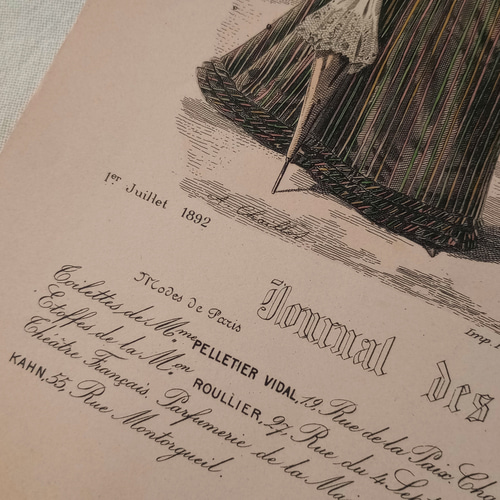 A. Chaillot
1er Juillet 1892
Imp.
Modes de Paris
Journal des
Toilettes de Mme PELLETIER VIDAL, 19, Rue de la Paix.
Etoffes de la Mon ROULLIER, 27, Rue du 4
Théâtre Français. Parfumerie de la
KAHN, 55, Rue Montorgueil.